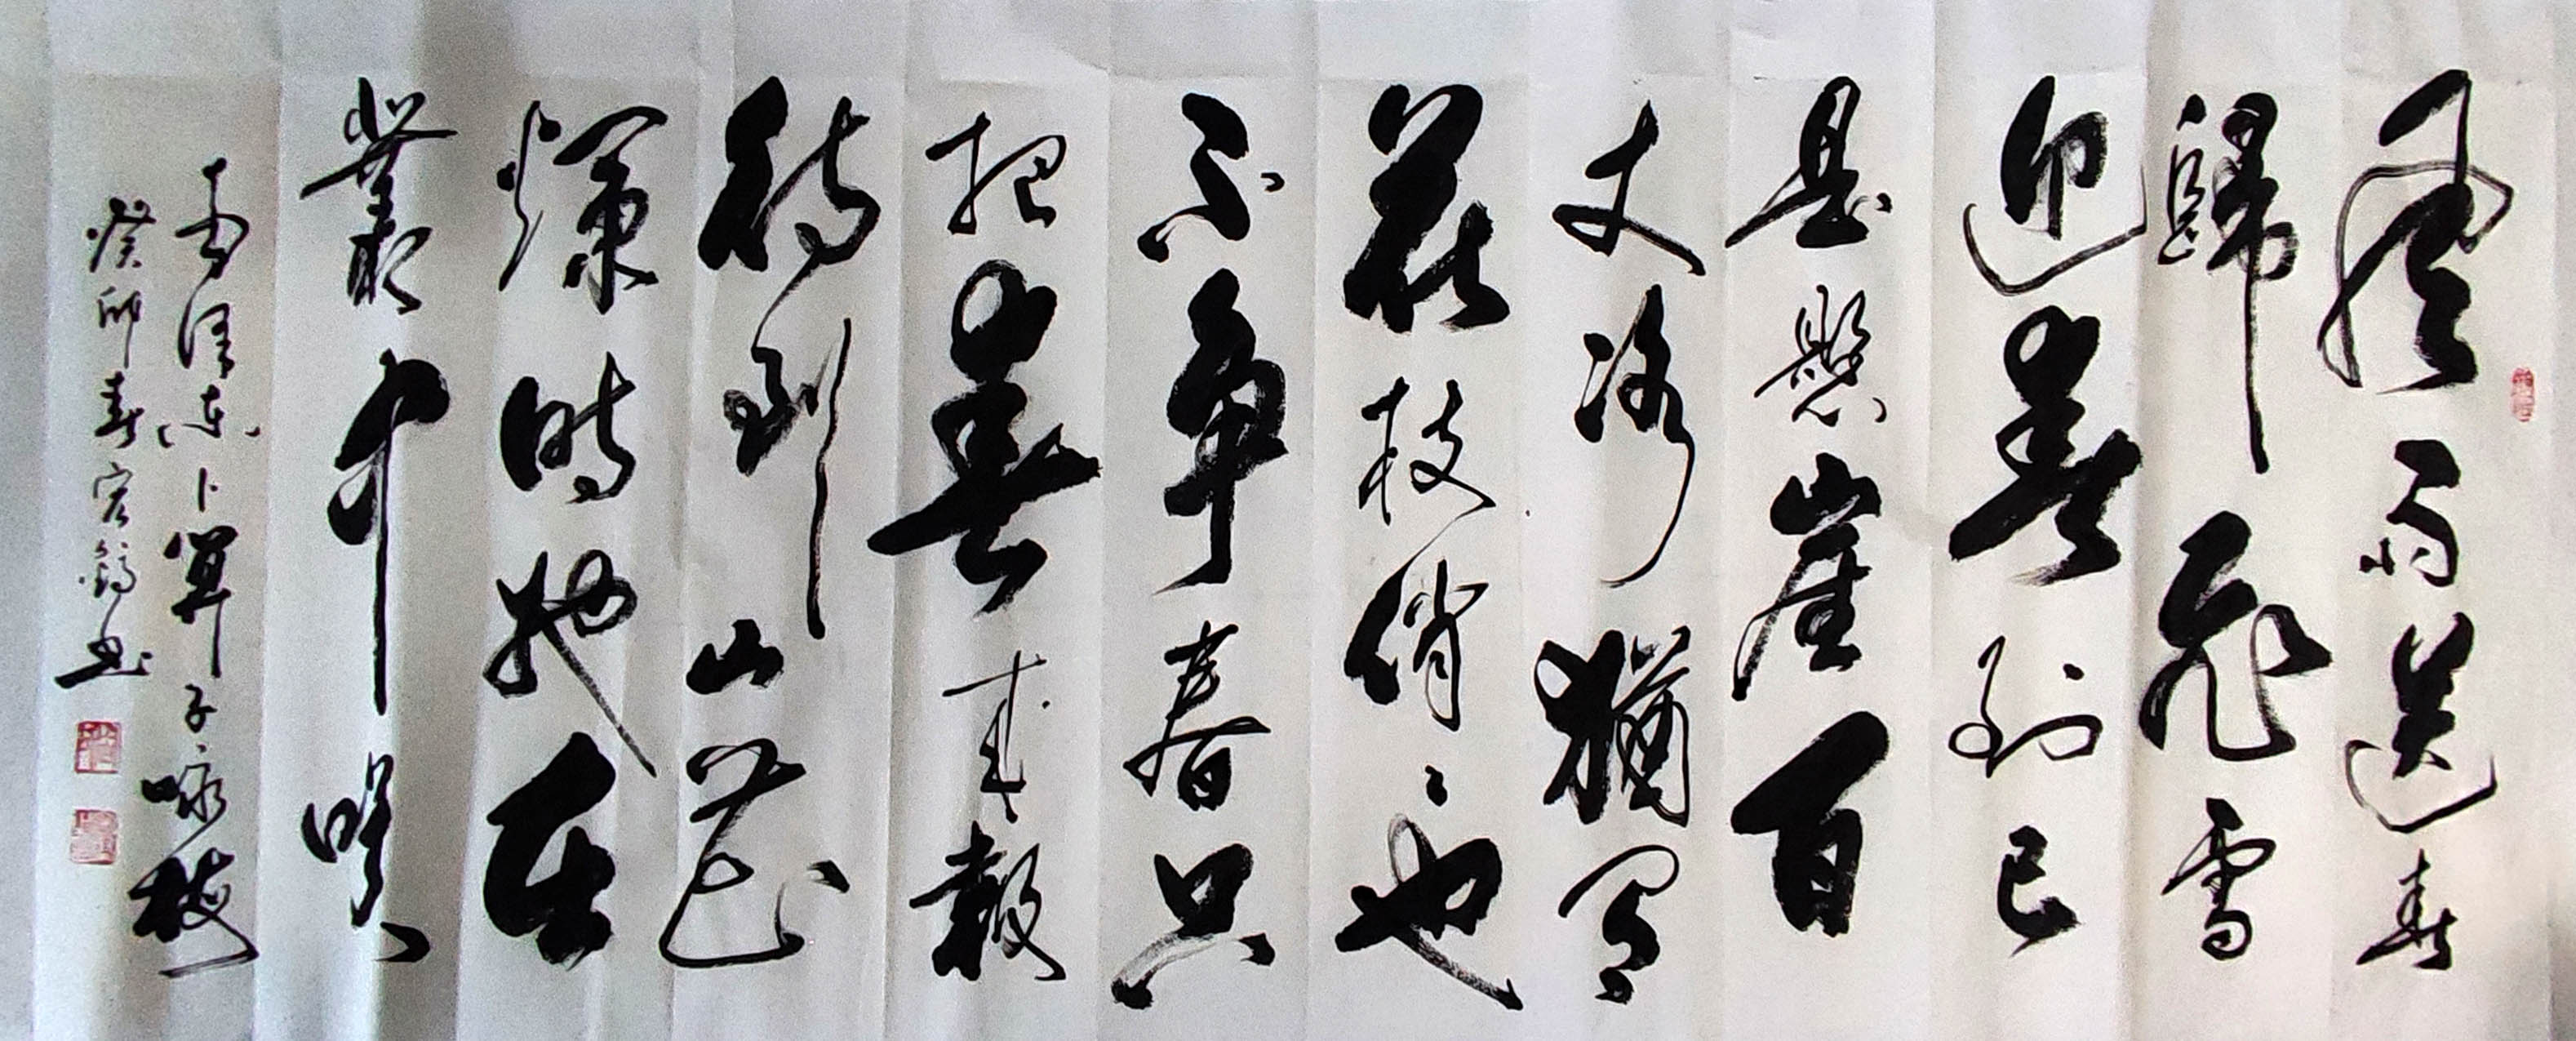 風雨送春
歸飛雪
迎春到已
是懸崖百
丈冰猶有
花枝俏々也
不爭春只
把春來報
待到山花
爛時她在
叢中咲
毛澤東卜算子咏梅
癸卯春宏書